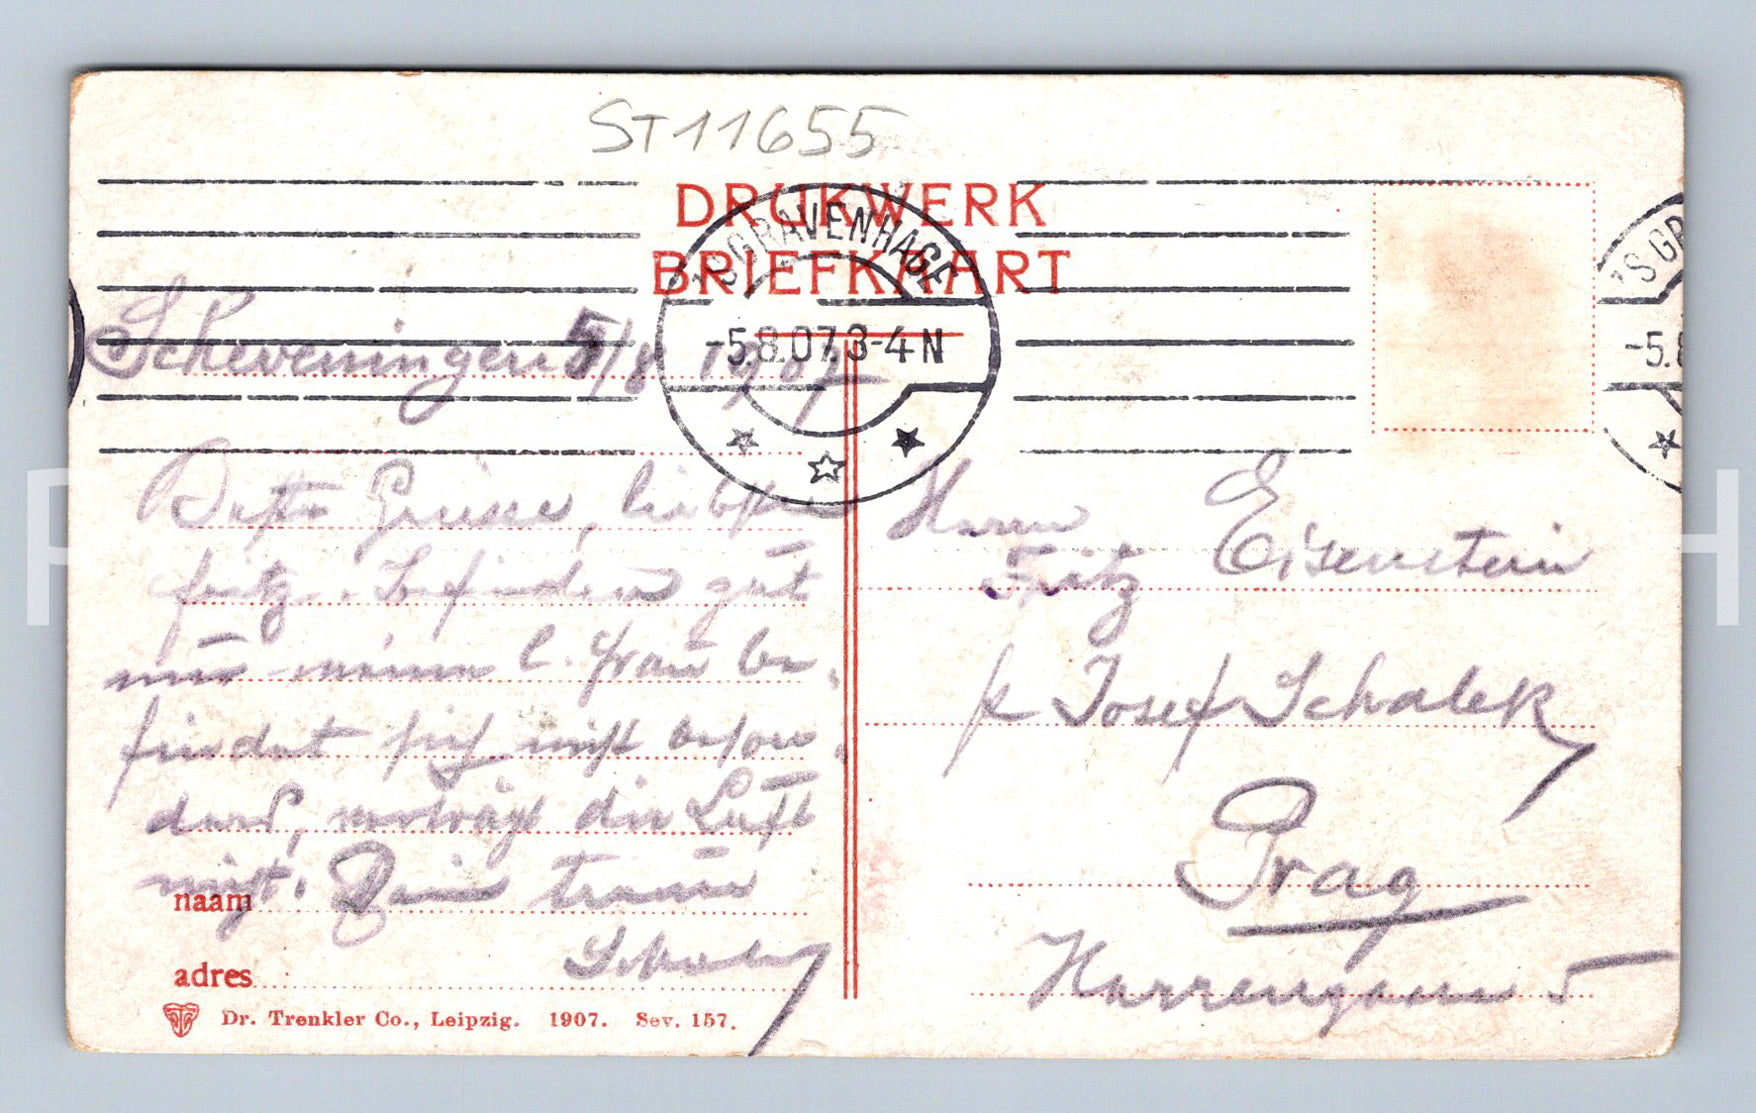 ST11655
DRUKWERK
BRIEFKAART
'SGRAVENHAGE
-5.8.07.3-4N
'SGR
-5.8
Scheveningen 5/8 1907
Beste Grüsse, liebst
Fritz. Befinden gut
nur meine l. Frau be-
findet sich nicht beson-
ders, verträgt die Luft
nicht. Dein treuer
Schalek
Herrn
Fritz Eisenstein
p Josef Schalek
Prag
Herrengasse 5
naam
adres
Dr. Trenkler Co., Leipzig. 1907. Sev. 157.